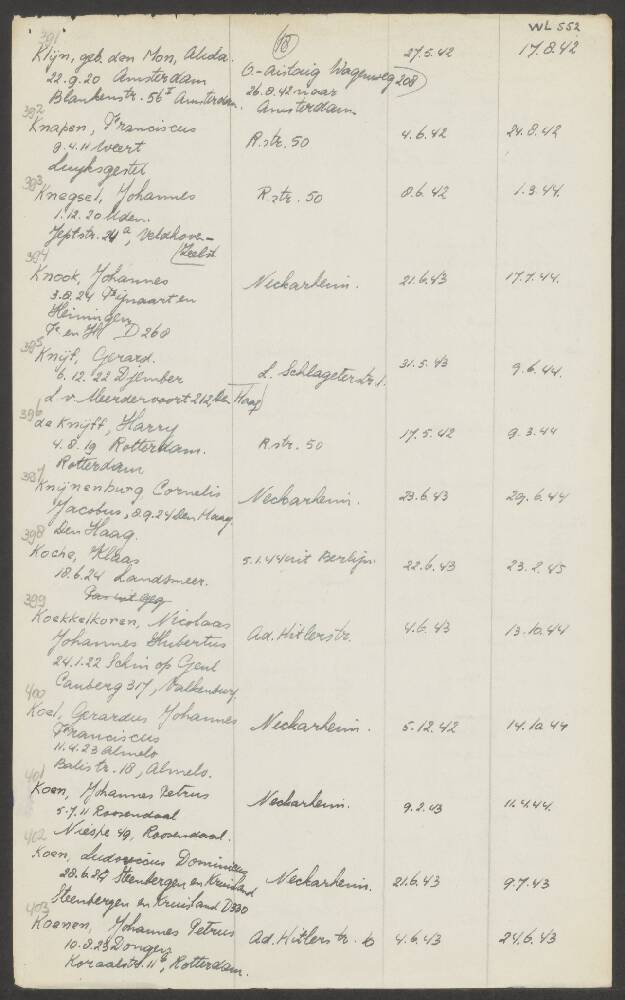 WL 552
(18)
391
Klijn, geb. den Mon, Alida. 27.5.42 17.8.42
22.9.20 Amsterdam O- Wagenweg 208
Blankenstr. 56 II Amsterdam. 26.8.42 naar Amsterdam
392
Knapen, Franciscus R.str. 50 4.6.42 24.8.42
9.4.11 Weert
Luyksgestel
393
Knegsel, Johannes R.str. 50 8.6.42 1.3.44.
1.12.20 Uden.
24 a, Veldhoven-
Zeelst
394
Knook, Johannes Neckarheim. 21.6.43 17.7.44.
3.8.24 Fijnaart en
Heiningen
F. en H. D268
395
Knijf, Gerard. L. Schlageterstr. 1. 31.5.43 9.6.44.
6.12.22 Djember
L. v. Meerdervoort 212, Den Haag
396
de Knijff, Harry R.str. 50 17.5.42 9.3.44
4.8.19 Rotterdam.
Rotterdam
397
Knijnenburg, Cornelis Neckarheim. 23.6.43 29.6.44
Jacobus, 8.9.24 Den Haag
Den Haag.
398
Koche, Klaas 5.1.44 uit Berlijn 22.6.43 23.2.45
18.6.24 Landsmeer.
399
Koekkelkoren, Nicolaas Ad. Hitlerstr. 4.6.43 13.10.44
Johannes Hubertus
24.1.22 Schin op Geul
Cauberg 317, Valkenburg
400
Koel, Gerardus Johannes Neckarheim. 5.12.42 14.10.44
Franciscus
11.4.23 Almelo
Balistr. 18, Almelo.
401
Koen, Johannes Petrus Neckarheim. 9.2.43 11.4.44.
5.7.11 Roosendaal
Niespe 49, Roosendaal.
402
Koen, Ludovicus Dominicus Neckarheim. 21.6.43 9.7.43
28.6.24 Steenbergen en Kruisland
Steenbergen en Kruisland D330
403
Koenen, Johannes Petrus Ad. Hitlerstr. 6 4.6.43 24.6.43
10.8.23 Dongen
Koraalstr. 11 b, Rotterdam.